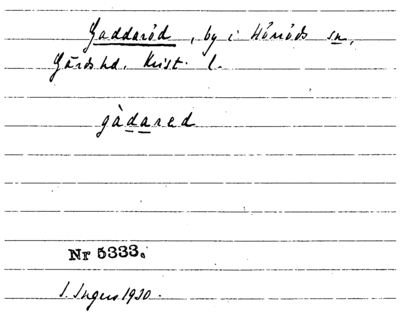 Gaddaröd, by i Hörröds sn,
Gärds hd. Krist. l.
gàdared
Nr 5333.
I. Ingers 1930.